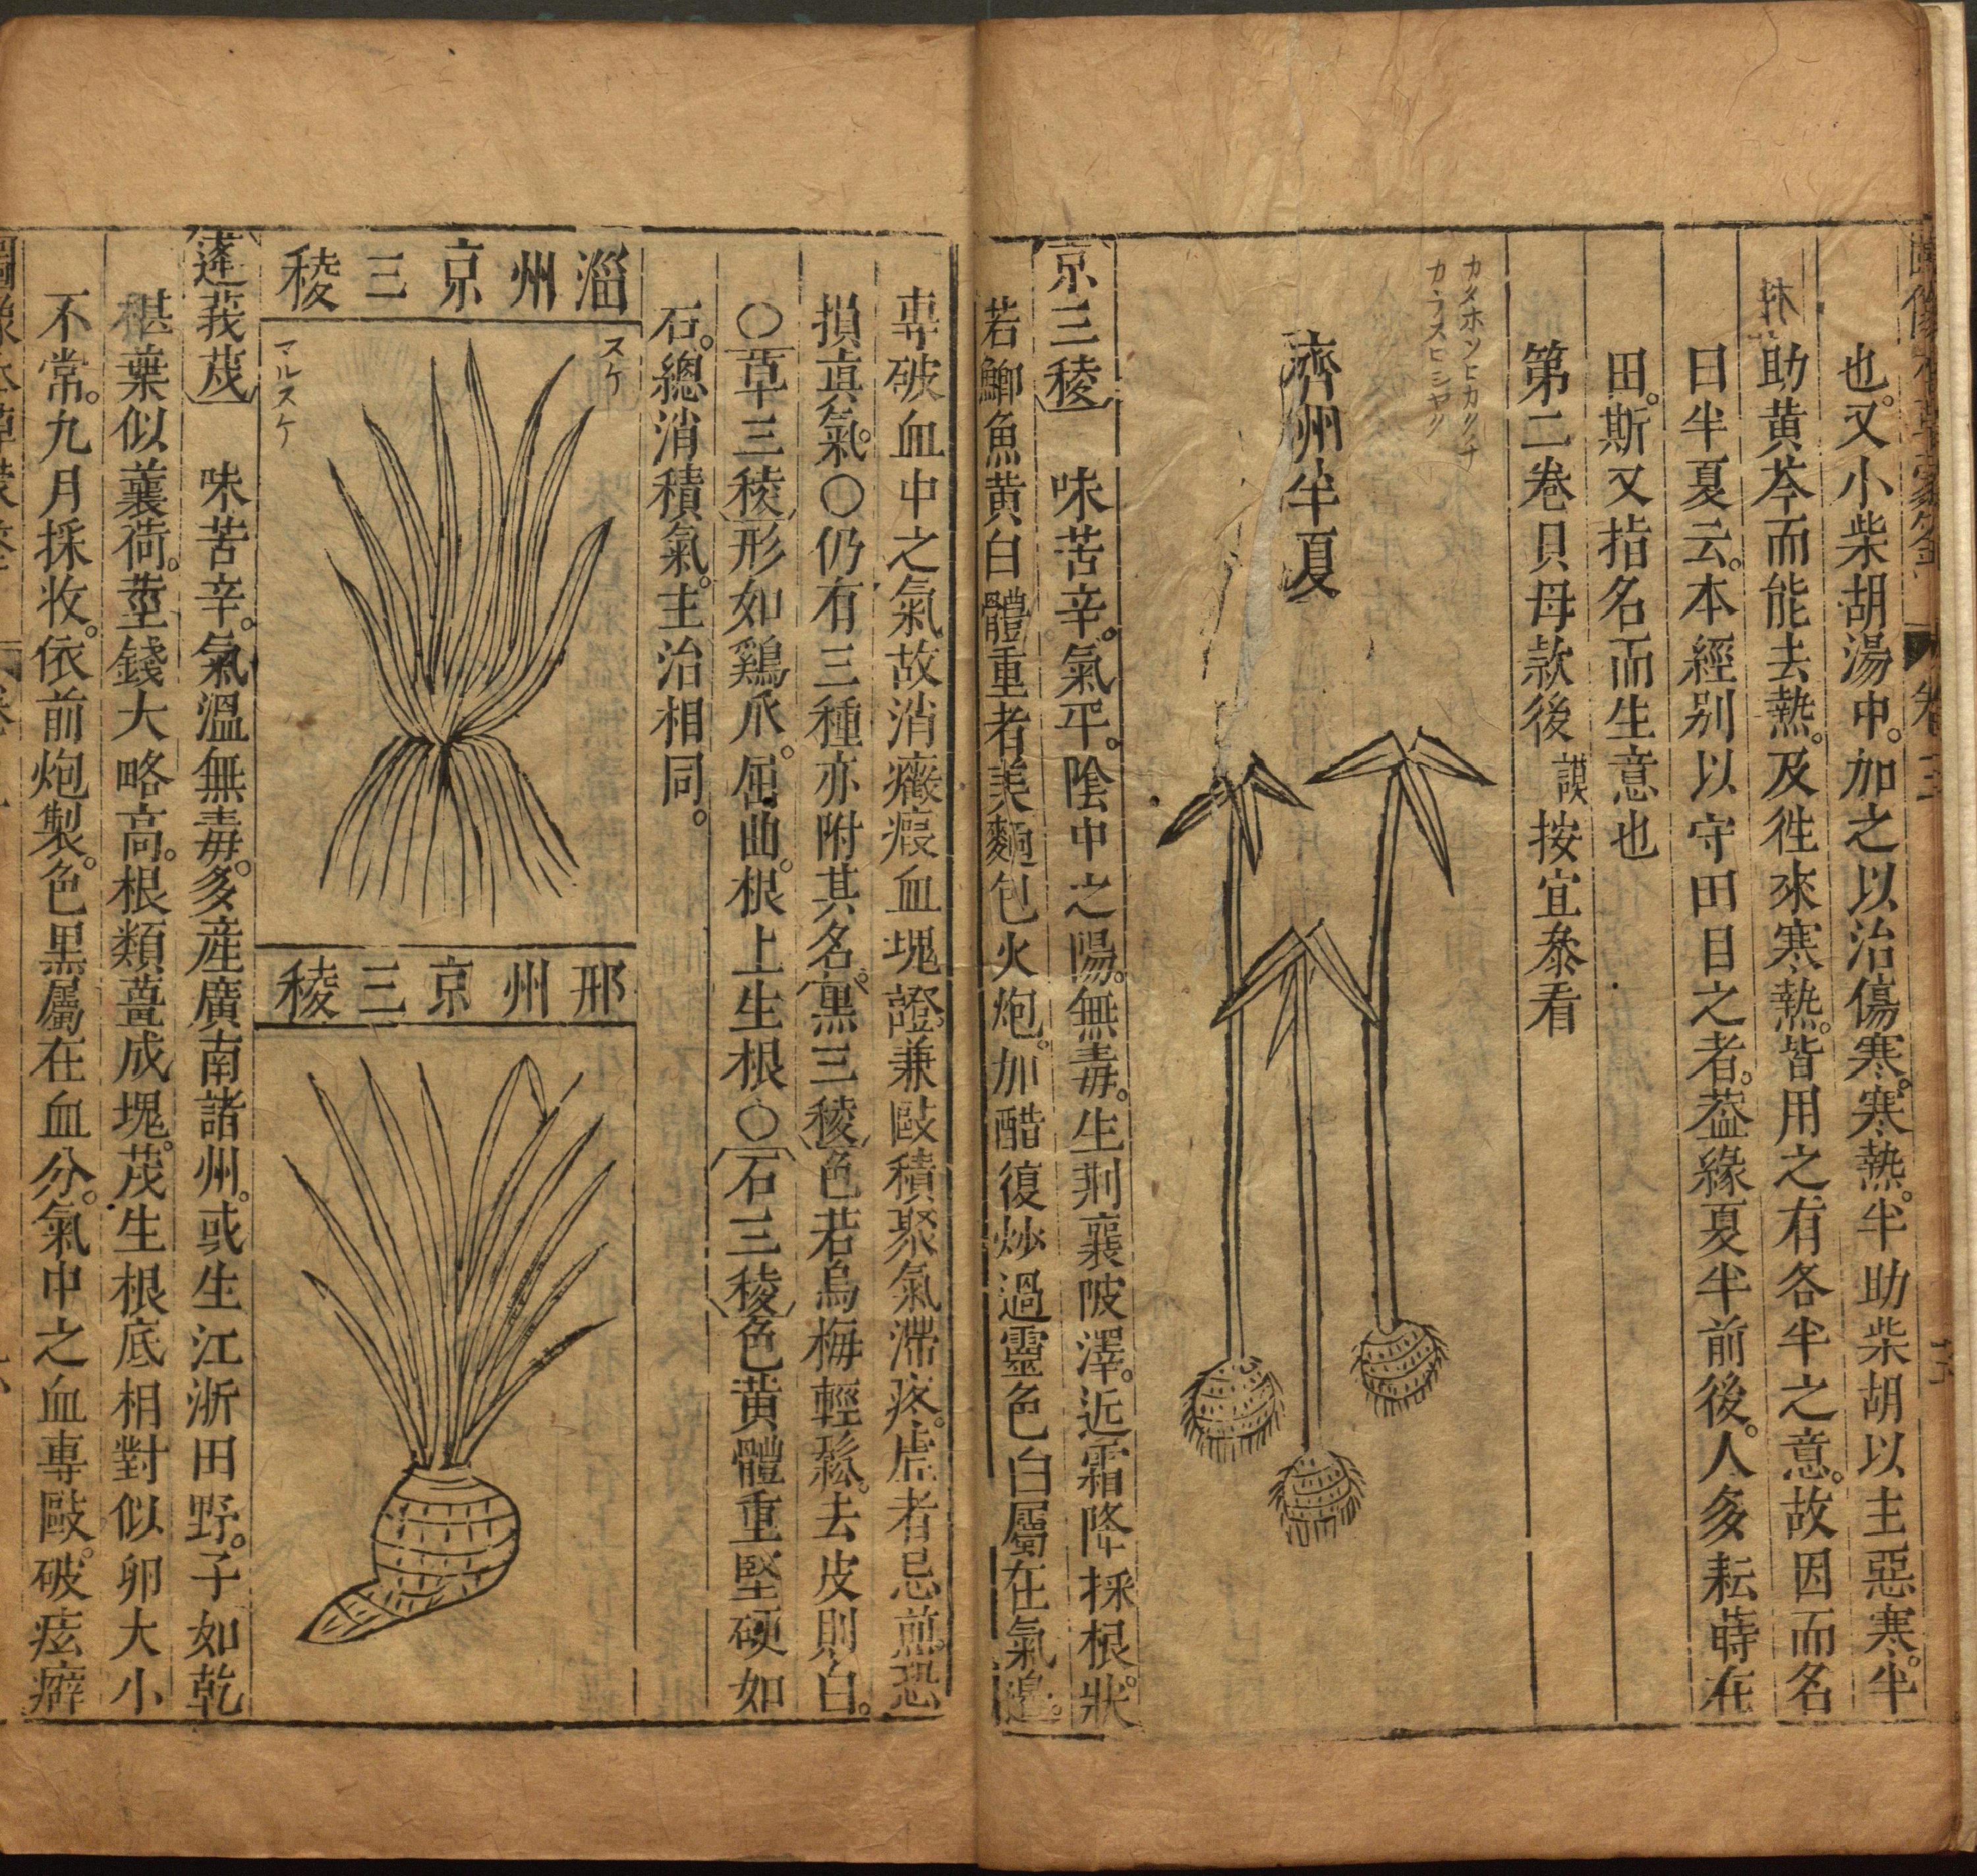 也。又小柴胡湯中。加之以治傷寒。寒熱。半助柴胡以主惡寒。半
助黄芩而能去熱。及徃來寒熱。皆用之有各半之意。故因而名
曰半夏云。本經别以守田目之者。葢緣夏半前後。人多耘蒔在
田。斯又指名而生意也
第二卷貝母款後謨按宜叅看
カタホソヒカクサ
カラスヒシヤク
濟州半夏
京三稜 味苦辛。氣平。陰中之陽。無毒。生荆襄陂澤。近霜降採根。狀
若鯽魚黄白體重者美麵包火炮。加醋復炒過靈色白屬在氣邉。
專破血中之氣故消癥瘕血塊證兼敺積聚氣滯疼。虐者忌煎恐
損真氣。○仍有三種亦附其名。黑三稜色若烏梅輕鬆。去皮則白。
○草三稜形如鷄爪。屈曲。根上生根○石三稜色黄體重堅硬如
石。總消積氣。主治相同。
淄州京三稜
スケ
マルスケ
邢州京三稜
蓬莪茂 味苦辛。氣溫無毒。多産廣南諸州。或生江浙田野。子如乾
椹葉似蘘荷。莖錢大略高。根類薑成塊。茂生根底相對似卵大小
不常。九月採收。依前炮製。色黑屬在血分。氣中之血專敺。破痃癖